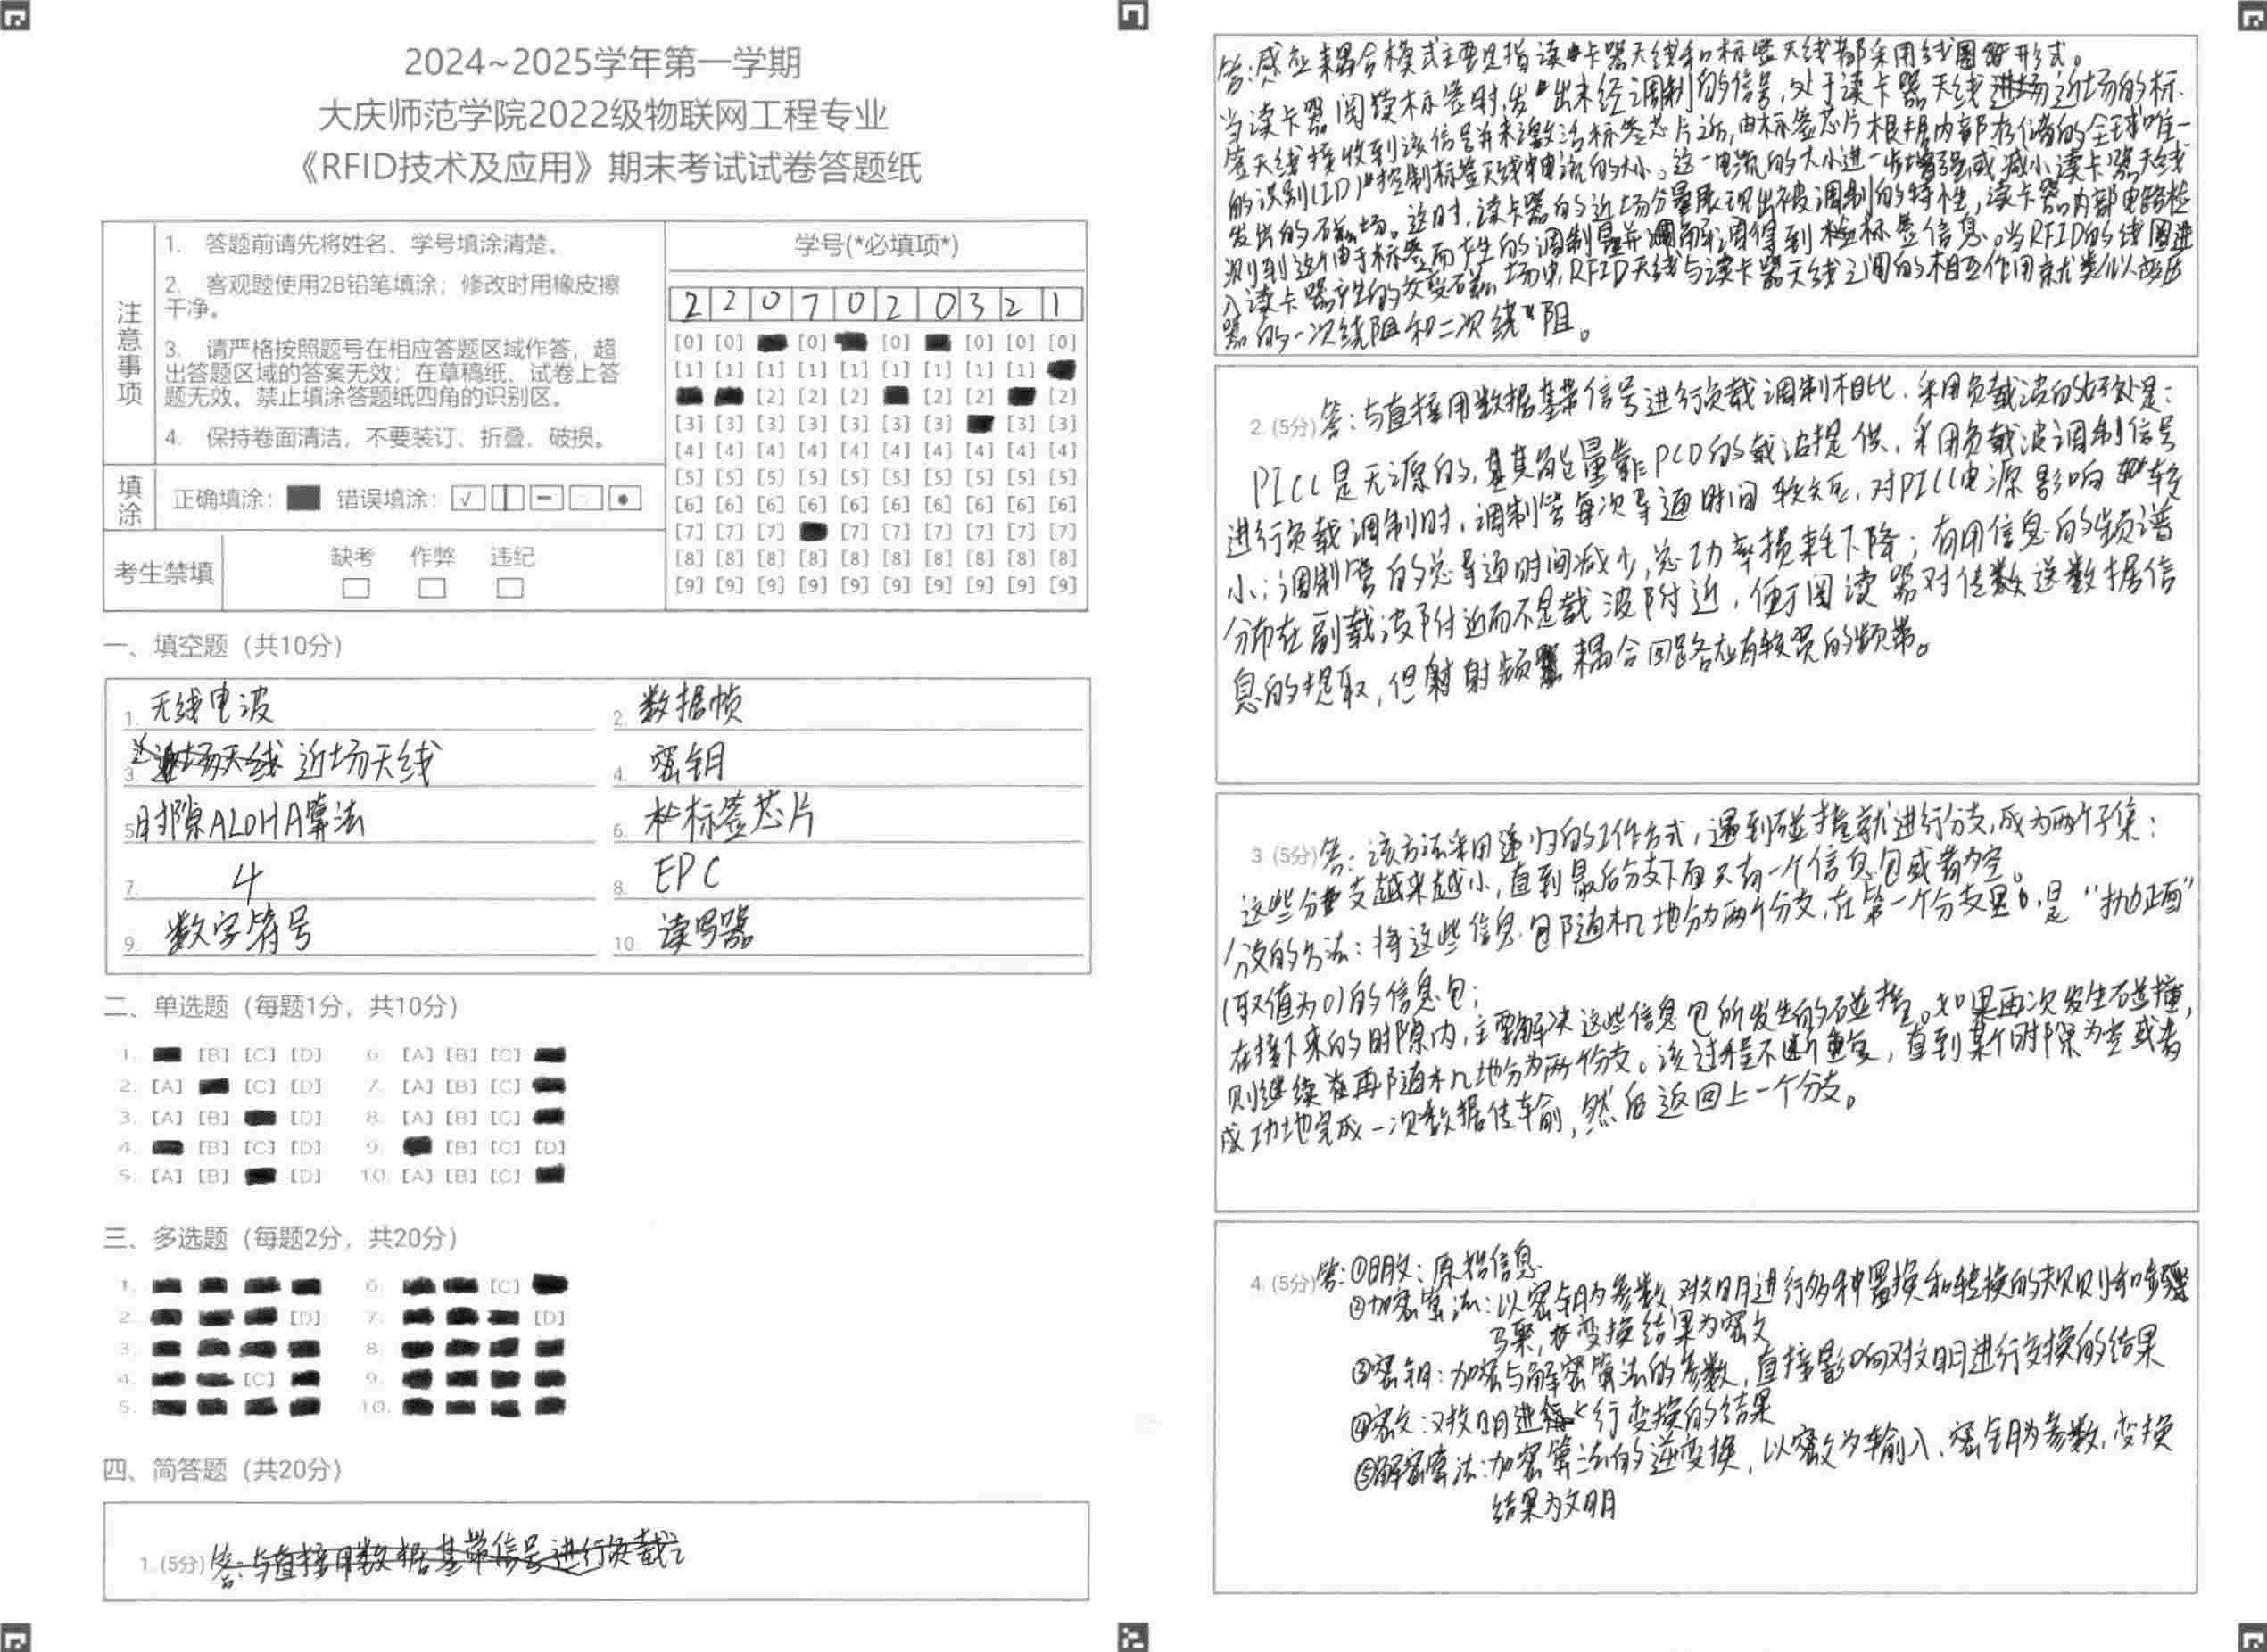 2024~2025学年第一学期
大庆师范学院2022级物联网工程专业
《RFID技术及应用》期末考试试卷答题纸
注意事项
1. 答题前请先将姓名、学号填涂清楚。
2. 客观题使用2B铅笔填涂；修改时用橡皮擦
干净。
3. 请严格按照题号在相应答题区域作答，超
出答题区域的答案无效；在草稿纸、试卷上答
题无效。禁止填涂答题纸四角的识别区。
4. 保持卷面清洁，不要装订、折叠、破损。
填涂 正确填涂： 错误填涂：
考生禁填 缺考 作弊 违纪
学号(*必填项*)
2 2 0 7 0 2 0 3 2 1
[0] [0] [0] [0] [0] [0] [0]
[1] [1] [1] [1] [1] [1] [1] [1] [1]
[2] [2] [2] [2] [2] [2]
[3] [3] [3] [3] [3] [3] [3] [3] [3]
[4] [4] [4] [4] [4] [4] [4] [4] [4] [4]
[5] [5] [5] [5] [5] [5] [5] [5] [5] [5]
[6] [6] [6] [6] [6] [6] [6] [6] [6] [6]
[7] [7] [7] [7] [7] [7] [7] [7] [7]
[8] [8] [8] [8] [8] [8] [8] [8] [8] [8]
[9] [9] [9] [9] [9] [9] [9] [9] [9] [9]
一、填空题（共10分）
1. 无线电波
2. 数据帧
3. 近场天线
4. 密钥
5. 时隙ALOHA算法
6. 标签芯片
7. 4
8. EPC
9. 数字符号
10 读写器
二、单选题（每题1分，共10分）
1. [B] [C] [D] 6. [A] [B] [C]
2. [A] [C] [D] 7. [A] [B] [C]
3. [A] [B] [D] 8. [A] [B] [C]
4. [B] [C] [D] 9. [B] [C] [D]
5. [A] [B] [D] 10. [A] [B] [C]
三、多选题（每题2分，共20分）
1. 6. [C]
2. [D] 7. [D]
3. 8.
4. [C] 9.
5. 10.
四、简答题（共20分）
1. (5分) 答：与直接用数据基带信号进行负载
答：感应耦合模式主要是指读卡器天线和标签天线都采用线圈形式。
当读卡器阅读标签时，发出未经调制的信号，处于读卡器天线近场的标
签天线接收到该信号并来激活标签芯片之后，由标签芯片根据内部存储的全球唯一
的识别(ID)控制标签天线中电流的大小。这一电流的大小进一步增强或减小读卡器天线
发出的磁场。这时，读卡器的近场分量展现出被调制的特性，读卡器内部电路检
测到这个由于标签而产生的调制量并解调得到标签信息。当RFID的线圈进
入读卡器产生的交变磁场中，RFID天线与读卡器天线之间的相互作用就类似变压
器的一次绕阻和二次绕阻。
2. (5分) 答：与直接用数据基带信号进行负载调制相比，采用负载波的好处是：
PICC是无源的，其能量靠PCD的载波提供，采用负载波调制信号
进行负载调制时，调制管每次导通时间较短，对PICC电源影响较
小；调制管的总导通时间减少，总功率损耗下降；有用信息的频谱
分布在副载波附近而不是载波附近，便于阅读器对传送数据信
息的提取，但射频耦合回路应有较宽的频带。
3 (5分) 答：该方法采用递归的工作方式，遇到碰撞就进行分支，成为两个子集；
这些分支越来越小，直到最后分支下面只有一个信息包或者为空。
分支的方法：将这些信息包随机地分为两个分支，在第一个分支里，是“抛正面”
(取值为0)的信息包；
在接下来的时隙内，主要解决这些信息包所发生的碰撞。如果再次发生碰撞，
则继续再随机地分为两个分支。该过程不断重复，直到某个时隙为空或者
成功地完成一次数据传输，然后返回上一个分支。
4. (5分) 答：①明文：原始信息
②加密算法：以密钥为参数，对文明进行多种置换和转换的规则和步
骤，变换结果为密文
③密钥：加密与解密算法的参数，直接影响对文明进行变换的结果
④密文：对文明进行变换的结果
⑤解密算法：加密算法的逆变换，以密文为输入、密钥为参数，变换
结果为文明